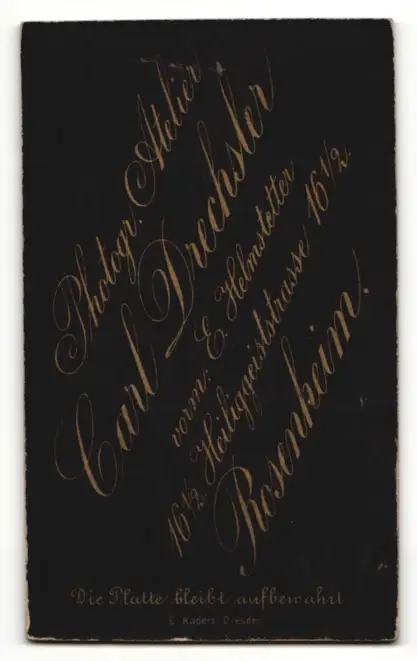 Photogr. Atelier
Carl Drechsler
vorm: E. Helmstetter
16½. Heiliggeiststrasse 16½.
Rosenheim.
Die Platte bleibt aufbewahrt
Dresden